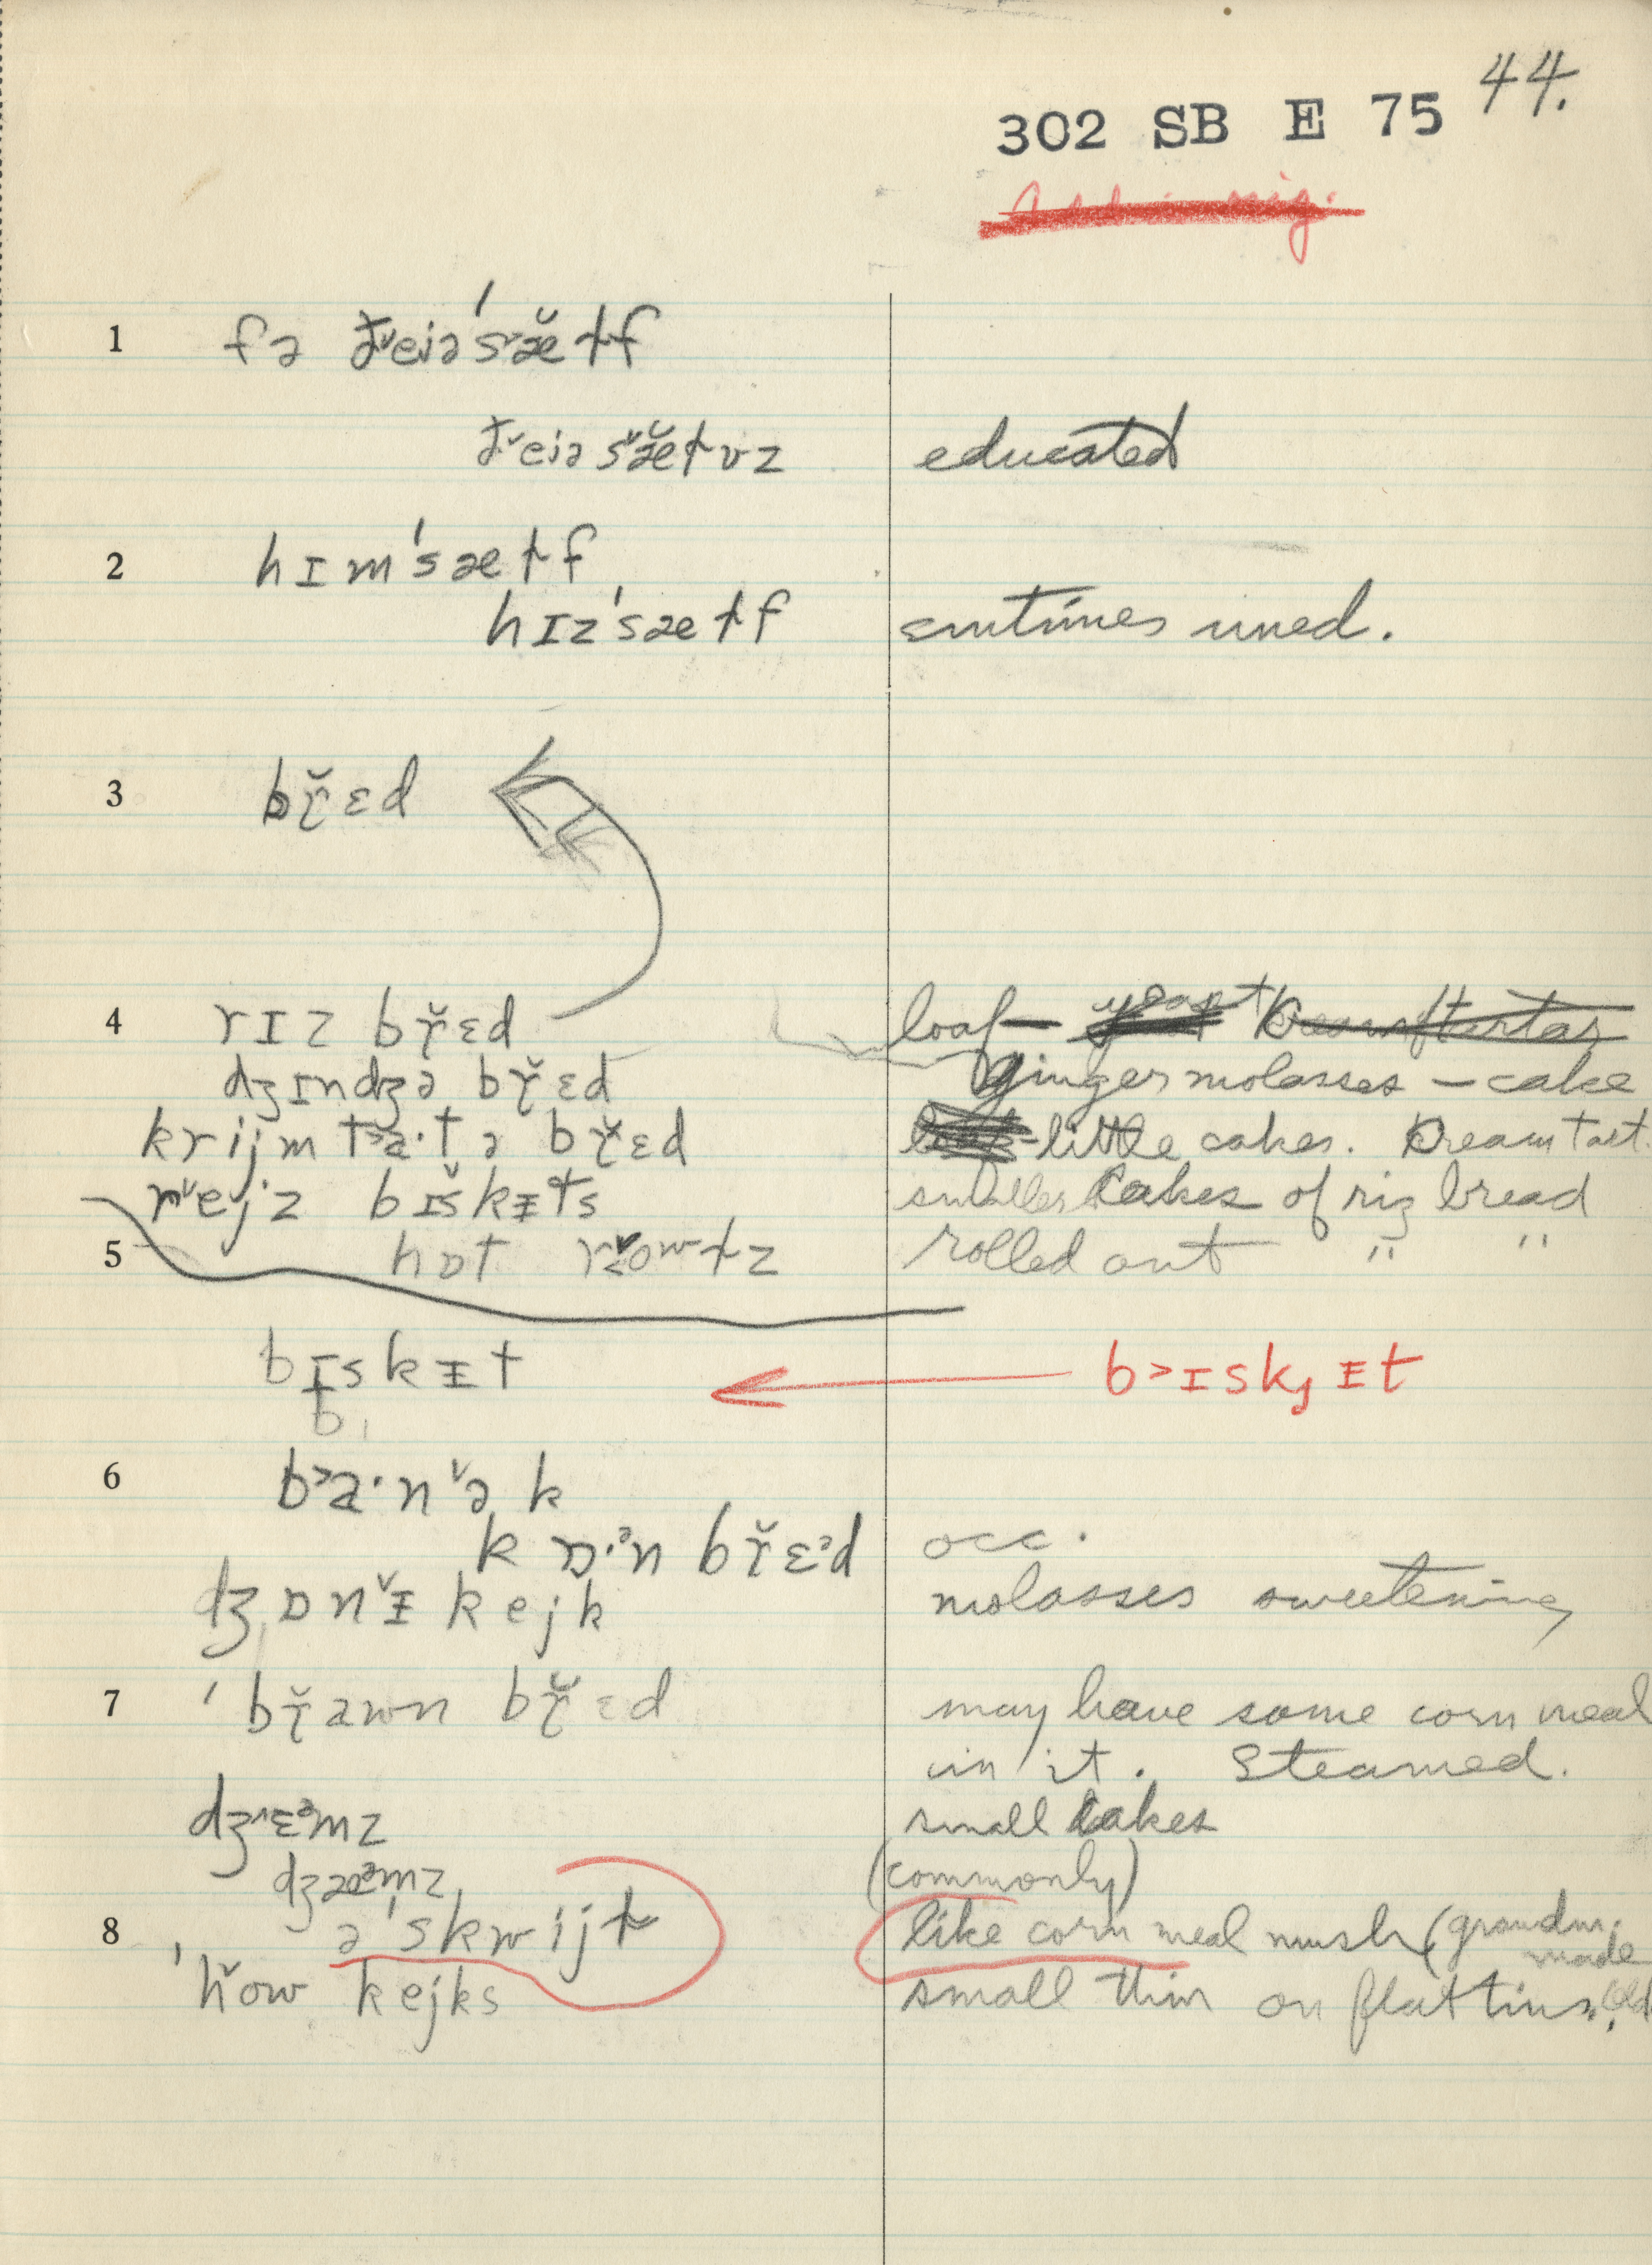 44.
302 SB E 75
1 fə ð̌eiə'sæ̌ɫf
ð̌eiəšæ̌ɫvz educated
2 hɪm'sæɫf
hɪz'sæɫf smtimes used.
3 bř̜ɛd
4 rɪz bř̜ɛd loaf — yeast Cream of tartar
dʒɪndʒə bř̜ɛd ginger molasses – cake
krijm t˃a·tə bř̜ɛd little cakes. Cream tart.
rˇejz bɪškᵻts smaller Cakes of riz bread
5 hɒt rˇowɫz rolled out " "
bɪskᵻt b˃ɪskjᵻt
b
6 b˃a·nˇək
kɒ·ᵊn bř̜ɛᵊd occ.
dʒɒnˇᵻ kejk molasses sweetening
7 'bř̜awn bř̜ɛd may have some corn meal
in it. Steamed.
dʒ^ɛᵊmz small cakes
dʒæᵊmz (commonly)
8 ə'skwijɫ like corn meal mush (grandm.
made
'ȟow kejks small thin on flat tins. (old